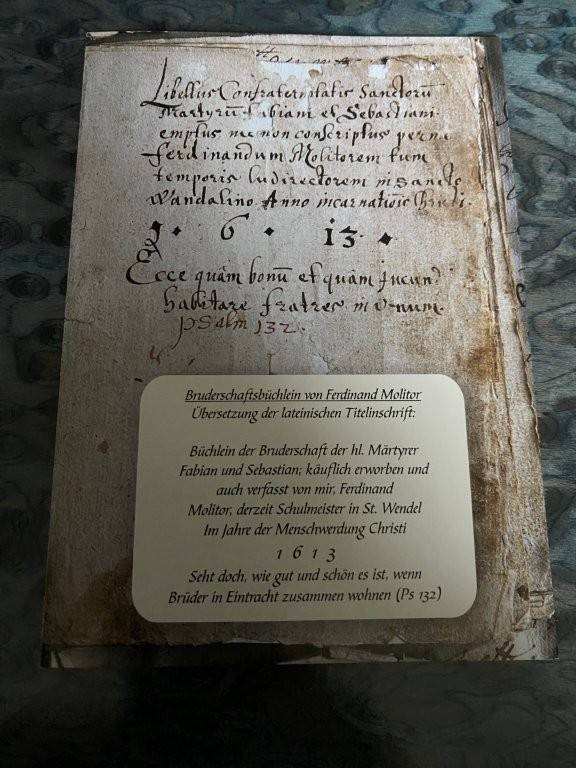 Libellus Confraternitatis Sanctorū
Martyrū Fabiani et Sebastiani
emptus nec non conscriptus per me
Ferdinandum Molitorem tum
temporis ludirectorem in Sancto
Wandalino Anno incarnationis Christi.
1 · 6 · 13 ·
Ecce quàm bonū et quàm jucund
habitare fratres in vnum.
psalm 132.
Bruderschaftsbüchlein von Ferdinand Molitor
Übersetzung der lateinischen Titelinschrift:
Büchlein der Bruderschaft der hl. Märtyrer
Fabian und Sebastian; käuflich erworben und
auch verfasst von mir, Ferdinand
Molitor, derzeit Schulmeister in St. Wendel
Im Jahre der Menschwerdung Christi
1 6 1 3
Seht doch, wie gut und schön es ist, wenn
Brüder in Eintracht zusammen wohnen (Ps 132)